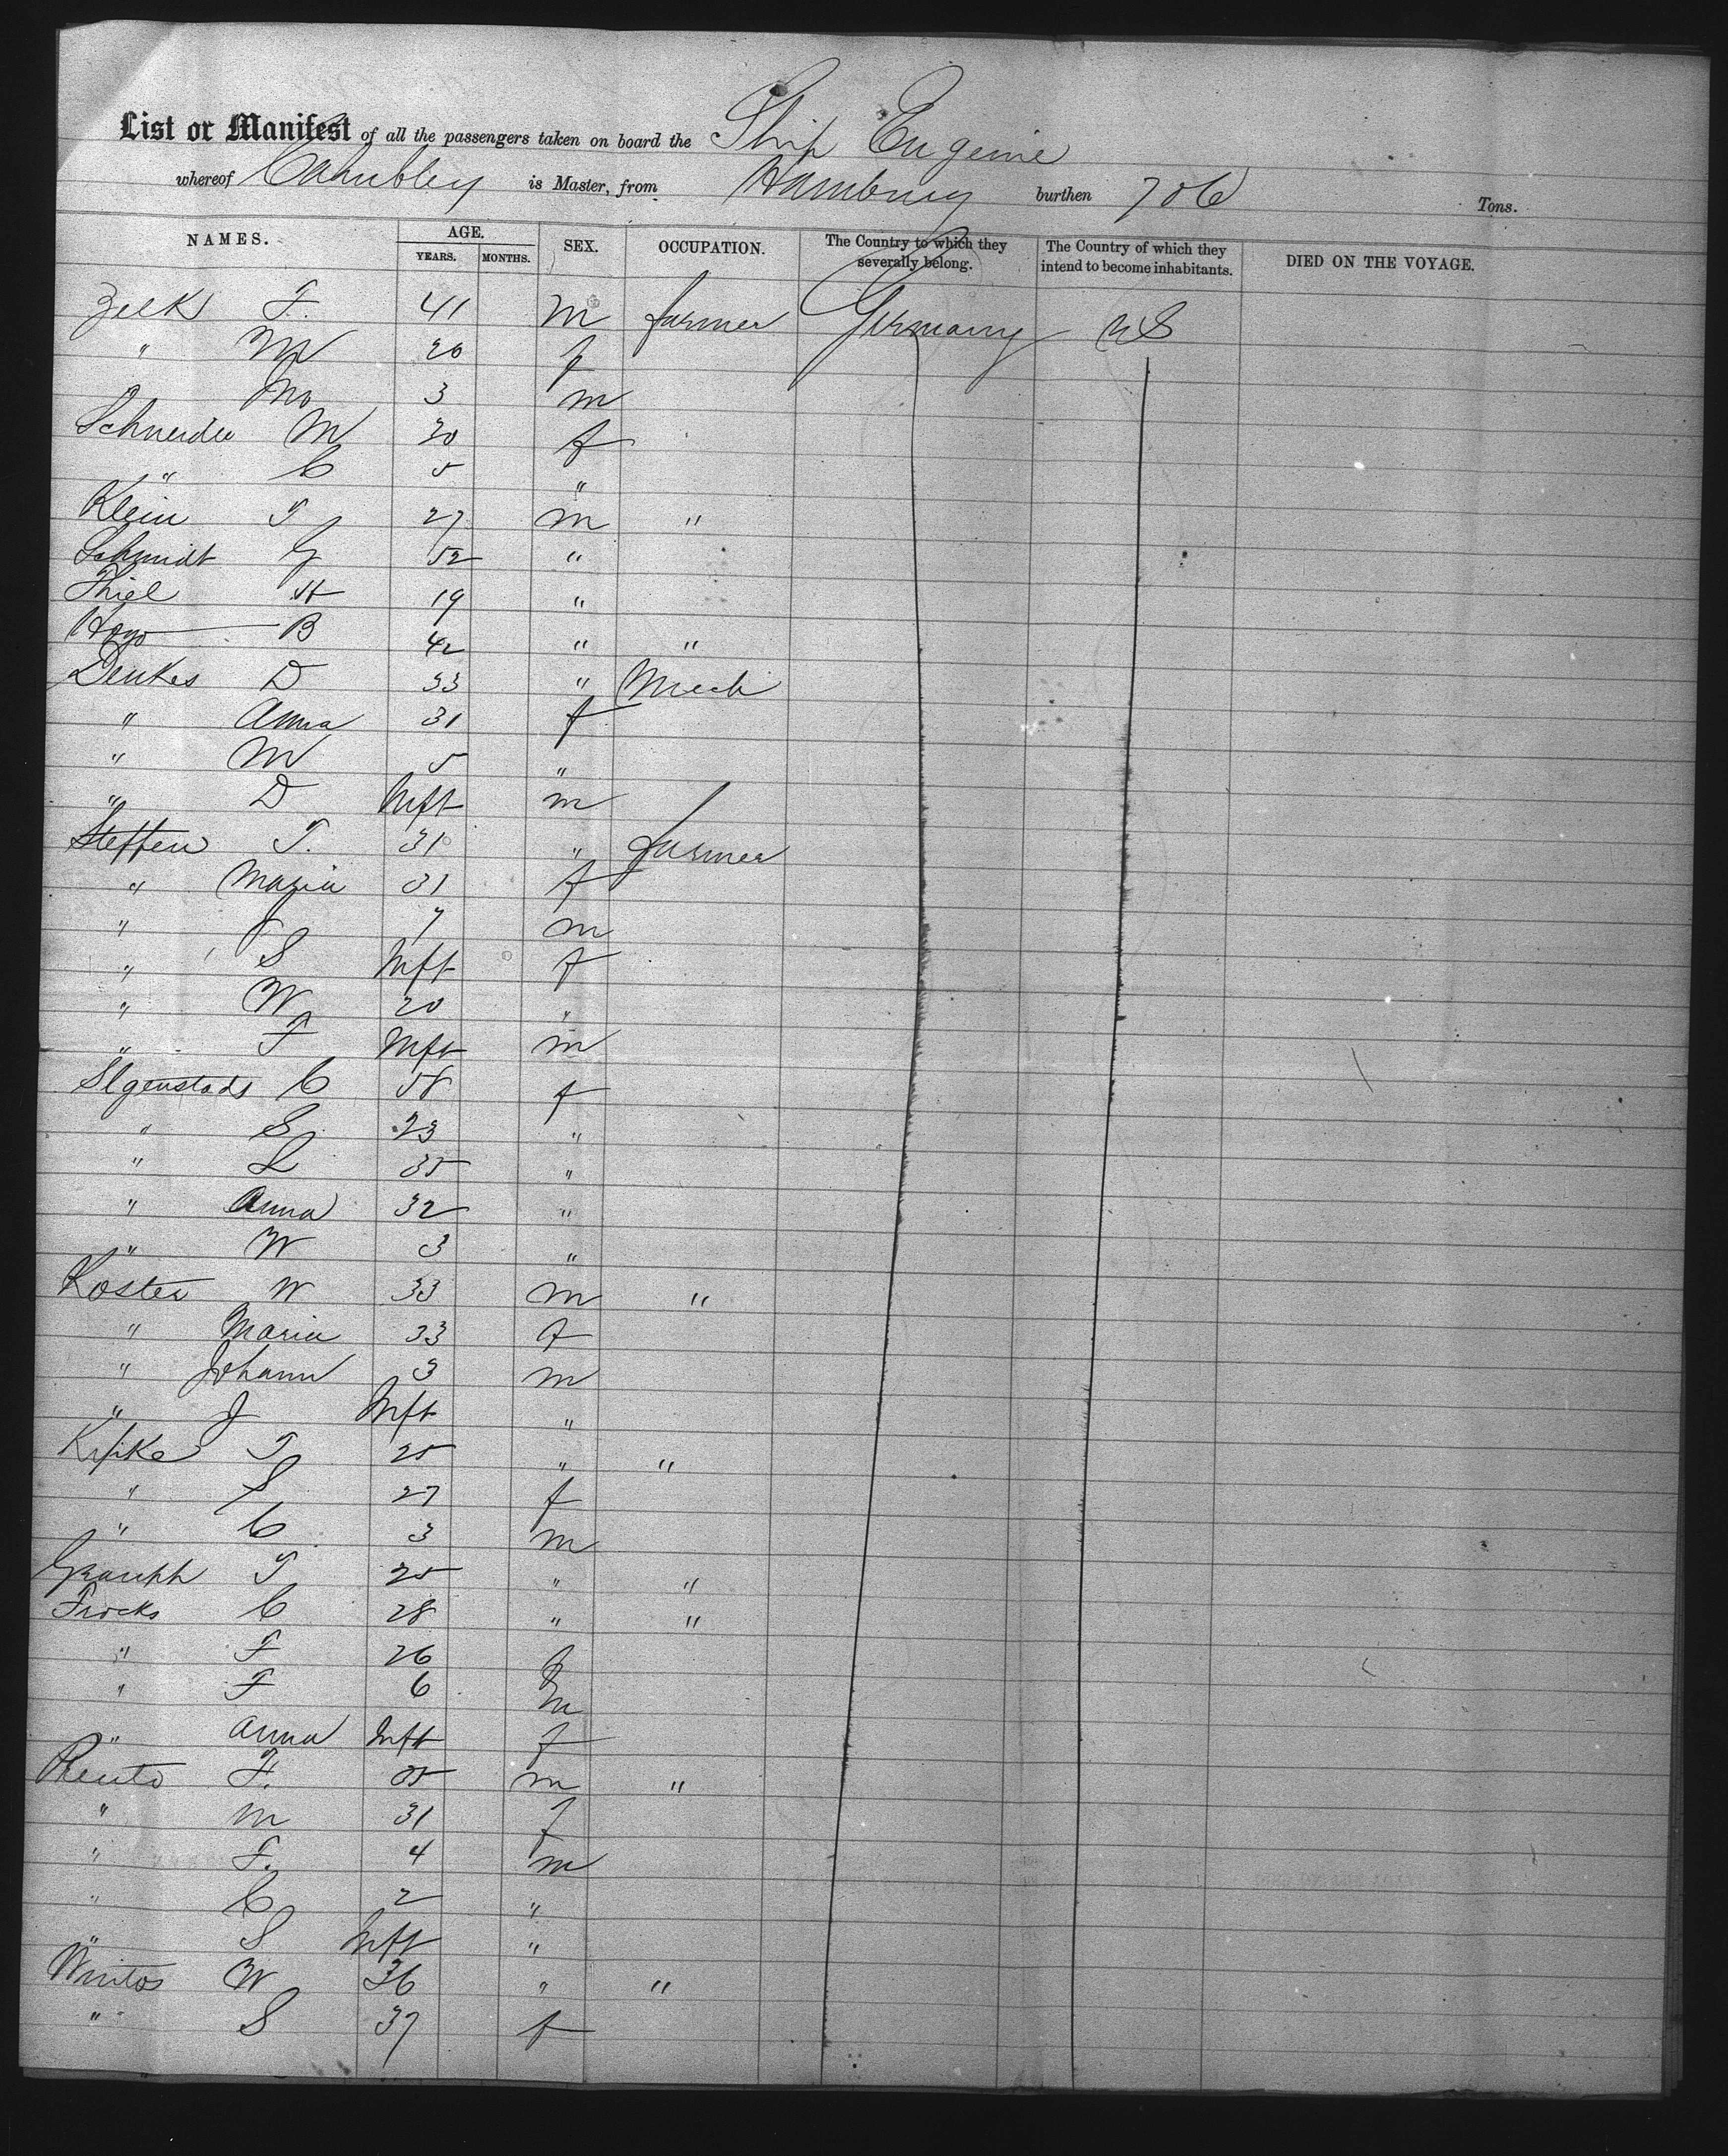 List or Manifest of all the passengers taken on board the Ship Eugenie
whereof is Master, from Hamburg burthen 706 Tons.
NAMES. AGE. SEX. OCCUPATION. The Country to which they severally belong. The Country of which they intend to become inhabitants. DIED ON THE VOYAGE.
YEARS. MONTHS.
Zelk F. 41 m farmer Germany US
" M 20 f
Mo 3 m
Schneider M 20 f
" C 5 "
Klein J 27 m "
Schmidt G 52 "
Thiel H 19 "
B 42 " "
Denkes D 33 " Mech
" Anna 31 f
" M 5 "
" D Inft m
Steffen J. 31 " farmer
" Maria 31 f
" J 7 m
" S Inft f
" W 20 "
" F Inft m
Ilgenstads C 58 f
" S 23 "
" L 35 "
" Anna 32 "
" W 3 "
Koster W 33 m "
" Maria 33 f
" Johann 3 m
" J Inft "
Kipke J 25 " "
" S 27 f
" C 3 m
J 25 " "
Frocks C 28 " "
" F 26 f
" F 6 m
" Anna Inft f
F. 35 m "
" M 31 f
" F. 4 m
" C 2 "
" S Inft "
W 36 " "
" S 37 f